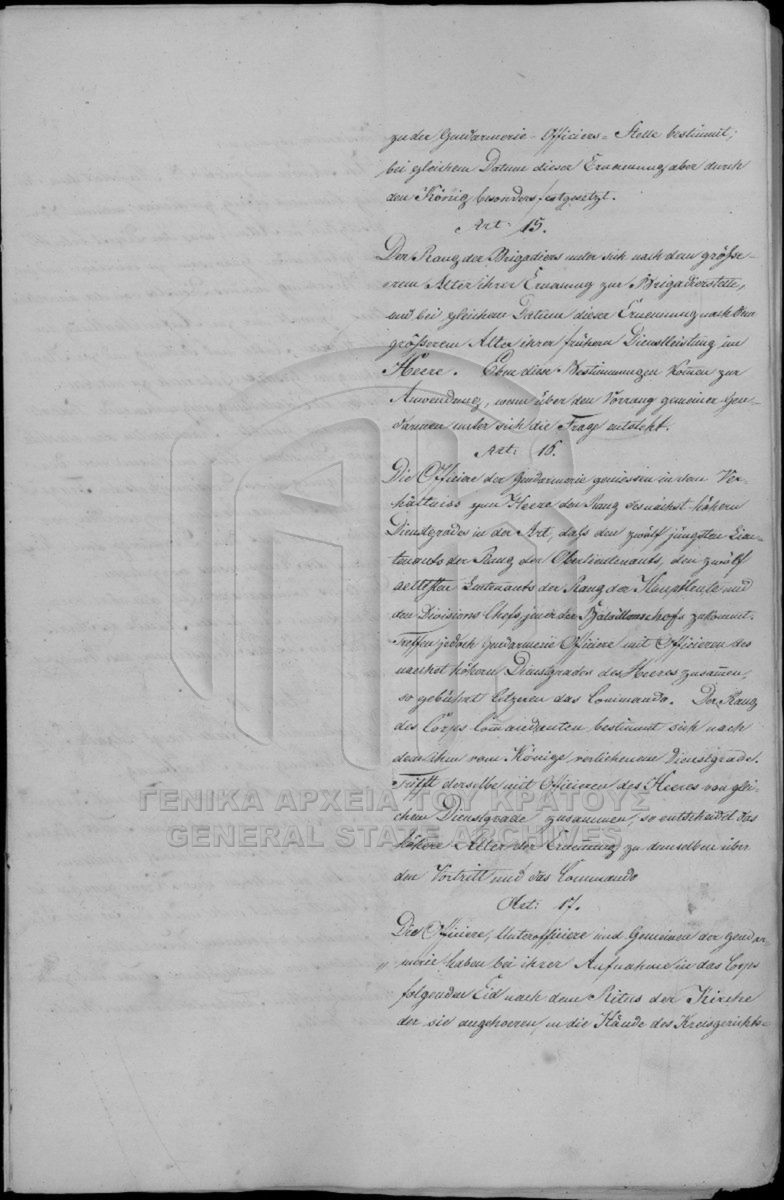 zu der Gendarmerie-Officiers-Stelle bestimmt;
bei gleichem Datum dieser Ernennung aber durch
den König besonders festgesetzt.
Art: 15.
Der Rang der Brigadiers unter sich nach dem größe-
rem Alter ihrer Ernenung zur Brigadierstelle,
und bei gleichem Datum dieser Ernennung nach dem
größerem Alter ihrer frühern Dienstleistung im
Heere. Eben diese Bestimmungen komen zur
Anwendung, wenn über den Vorrang gemeiner Gen-
darmen unter sich die Frage entsteht.
Art: 16.
Die Officiere der Gendarmerie geniessen in dem Ver-
hältniss zum Heere den Rang des nächst höhern
Dienstgrades in der Art, daß den zwölf jüngsten Lieu-
tenants der Rang der Oberlieutenants, den zwölf
aeltesten Lieutenants der Rang der Hauptleute und
den Divisions Chefs jener der Bataillonschefs zukommt.
Treffen jedoch Gendarmerie Officiere mit Officieren des
naechst höhern Dienstgrades des Heeres zusamen,
so gebührt letzeren das Commando. Der Rang
des Corps Comandanten bestimmt sich nach
dem ihm vom Könige verliehenem Dienstgrade.
Trifft derselbe mit Officieren des Heeres von glei-
chem Dienstgrade zusammen, so entscheidet das
höhere Alter der Ernenung zu demselben über
den Vortritt und das Commando
Art: 17.
Die Officiere, Unterofficiere und Gemeinen der Gendar-
merie haben bei ihrer Aufnahme in das Corps
folgenden Eid nach dem Ritus der Kirche
der sie angehoeren, in die Hände des Kreisgerichts-
ΓΕΝΙΚΑ ΑΡΧΕΙΑ ΤΟΥ ΚΡΑΤΟΥΣ
GENERAL STATE ARCHIVES